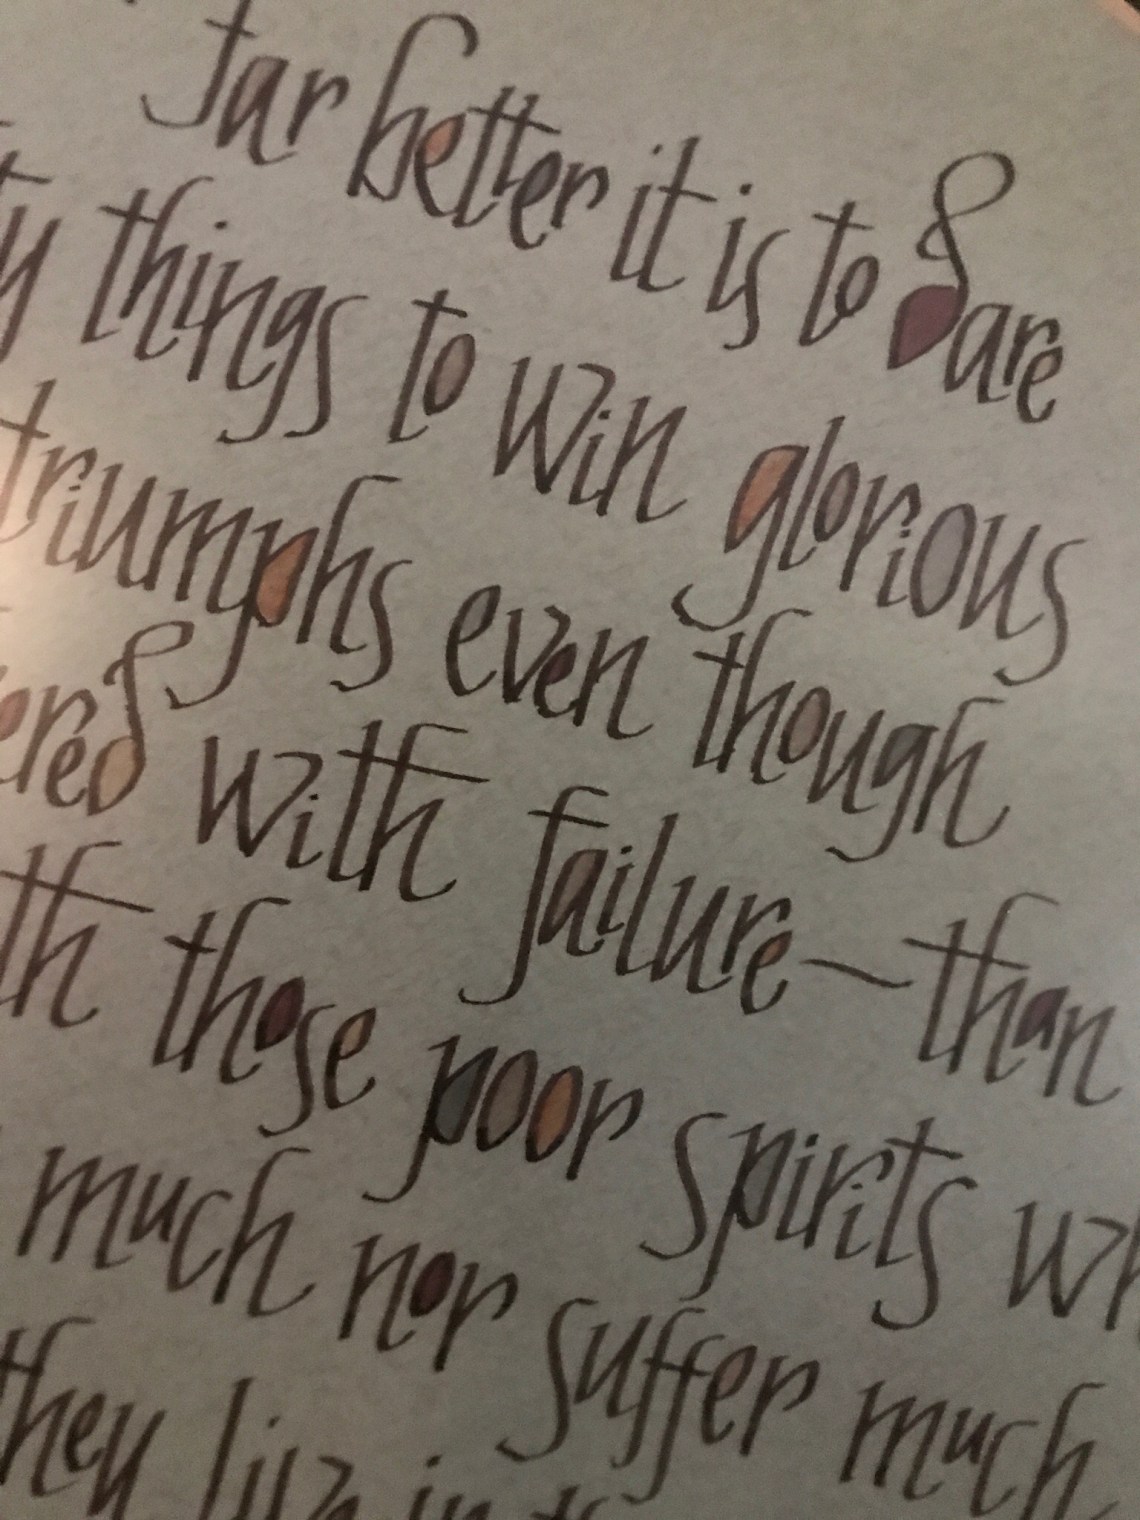 Far better it is to dare
things to win glorious
triumphs even though
with failure~than
those poor spirits
much nor suffer much
they live in